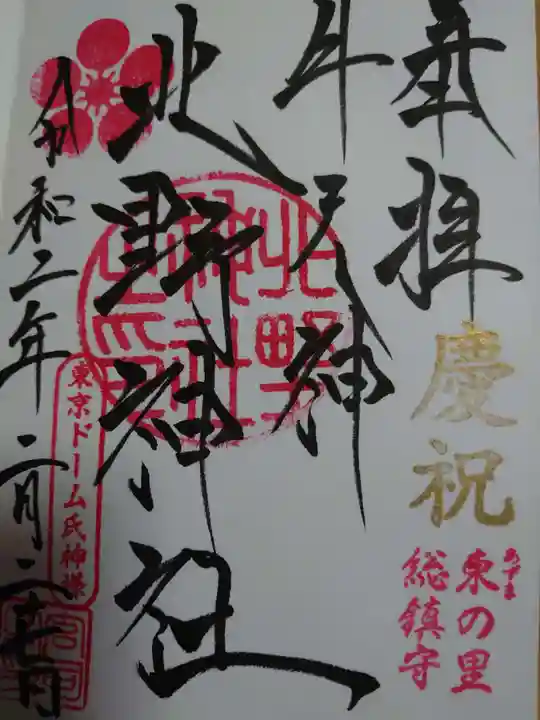 奉拝
慶祝
あずま
東の里
総鎮守
牛天神
北野神社
北野
神社
之印
東京ドーム氏神様
令和二年二月二十七日